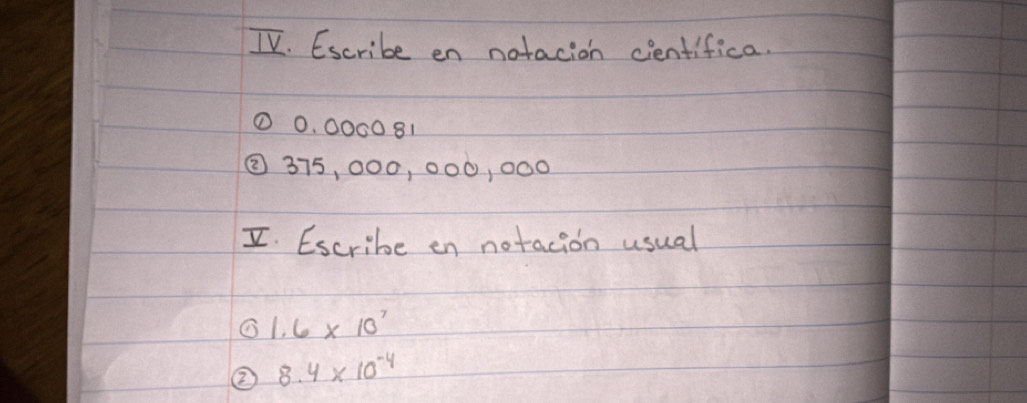 IV. Escribe en notación científica.
① 0.000081
② 375,000,000,000
V. Escribe en notación usual
① 1.6 × 10⁷
② 8.4 × 10⁻⁴